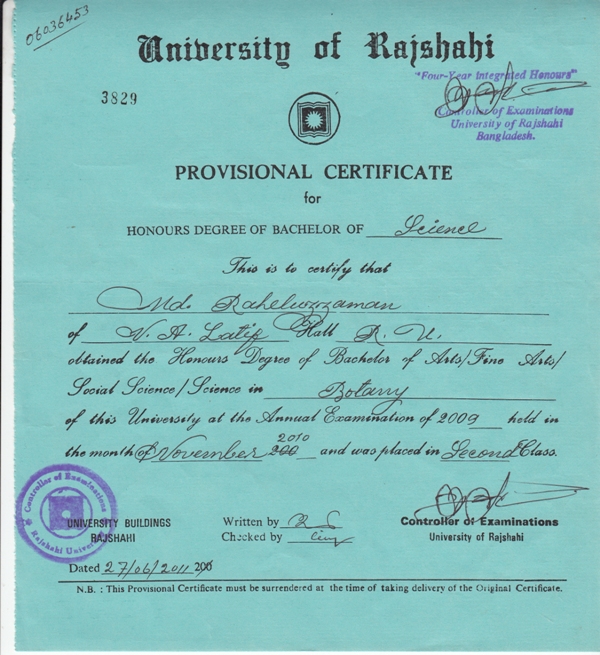 06036453
University of Rajshahi
"Four-Year Integrated Honours"
3829
Controller of Examinations
University of Rajshahi
Bangladesh.
PROVISIONAL CERTIFICATE
for
HONOURS DEGREE OF BACHELOR OF Science
This is to certify that
Md. Raheluzzaman
of N. A. Latif Hall R. U.
obtained the Honours Degree of Bachelor of Arts/Fine Arts/
Social Science/Science in Botany
of this University at the Annual Examination of 2009 held in
the month of November 2010 200 and was placed in Second Class.
Controller of Examinations
Rajshahi University
UNIVERSITY BUILDINGS
RAJSHAHI
Written by
Checked by
Controller of Examinations
University of Rajshahi
Dated 27/06/2011 200
N.B. : This Provisional Certificate must be surrendered at the time of taking delivery of the Original Certificate.